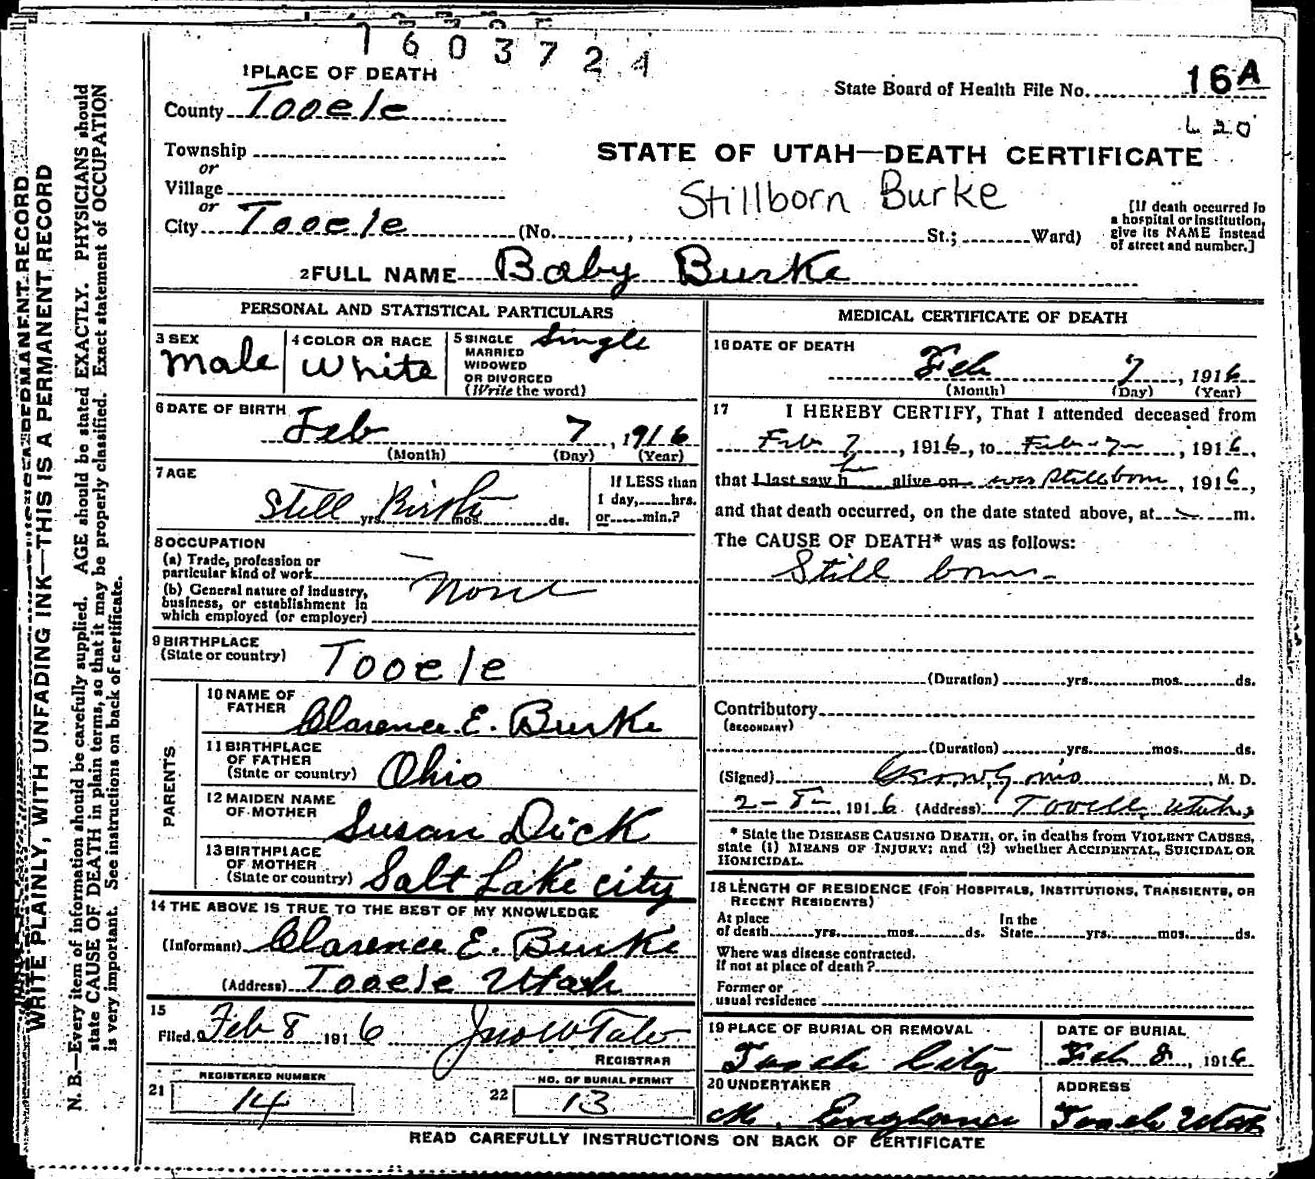 1603724
1 PLACE OF DEATH
County Tooele
State Board of Health File No. 16A
620
Township
or
Village
or
City Tooele (No. , St.; Ward)
STATE OF UTAH—DEATH CERTIFICATE
Stillborn Burke
[If death occurred in
a hospital or institution,
give its NAME instead
of street and number.]
2 FULL NAME Baby Burke
PERSONAL AND STATISTICAL PARTICULARS
3 SEX
Male
4 COLOR OR RACE
White
5 SINGLE
MARRIED
WIDOWED
OR DIVORCED
(Write the word)
Single
6 DATE OF BIRTH
Feb 7, 1916
(Month) (Day) (Year)
7 AGE
Still Birth
yrs. mos. ds.
If LESS than
1 day, hrs.
or min.?
8 OCCUPATION
(a) Trade, profession or
particular kind of work
(b) General nature of industry,
business, or establishment in
which employed (or employer)
None
9 BIRTHPLACE
(State or country) Tooele
PARENTS
10 NAME OF
FATHER Clarence E. Burke
11 BIRTHPLACE
OF FATHER
(State or country) Ohio
12 MAIDEN NAME
OF MOTHER Susan Dick
13 BIRTHPLACE
OF MOTHER
(State or country) Salt Lake City
14 THE ABOVE IS TRUE TO THE BEST OF MY KNOWLEDGE
(Informant) Clarence E. Burke
(Address) Tooele Utah
15
Filed Feb 8 1916
REGISTRAR
21 REGISTERED NUMBER
14
22 NO. OF BURIAL PERMIT
13
MEDICAL CERTIFICATE OF DEATH
16 DATE OF DEATH
Feb 7, 1916
(Month) (Day) (Year)
17 I HEREBY CERTIFY, That I attended deceased from
Feb 7, 1916, to Feb 7, 1916,
that I last saw h alive on was stillborn, 1916,
and that death occurred, on the date stated above, at m.
The CAUSE OF DEATH* was as follows:
Still born
(Duration) yrs. mos. ds.
Contributory
(SECONDARY)
(Duration) yrs. mos. ds.
(Signed) M. D.
2-8-, 1916 (Address) Tooele, Utah
* State the DISEASE CAUSING DEATH, or, in deaths from VIOLENT CAUSES,
state (1) MEANS OF INJURY; and (2) whether ACCIDENTAL, SUICIDAL OR
HOMICIDAL.
18 LENGTH OF RESIDENCE (FOR HOSPITALS, INSTITUTIONS, TRANSIENTS, OR
RECENT RESIDENTS)
At place
of death yrs. mos. ds.
In the
State yrs. mos. ds.
Where was disease contracted,
if not at place of death?
Former or
usual residence
19 PLACE OF BURIAL OR REMOVAL
Tooele City
DATE OF BURIAL
Feb 8, 1916
20 UNDERTAKER
M.
ADDRESS
Tooele Utah
READ CAREFULLY INSTRUCTIONS ON BACK OF CERTIFICATE
WRITE PLAINLY, WITH UNFADING INK—THIS IS A PERMANENT RECORD
N. B.—Every item of information should be carefully supplied. AGE should be stated EXACTLY. PHYSICIANS should
state CAUSE OF DEATH in plain terms, so that it may be properly classified. Exact statement of OCCUPATION
is very important. See instructions on back of certificate.